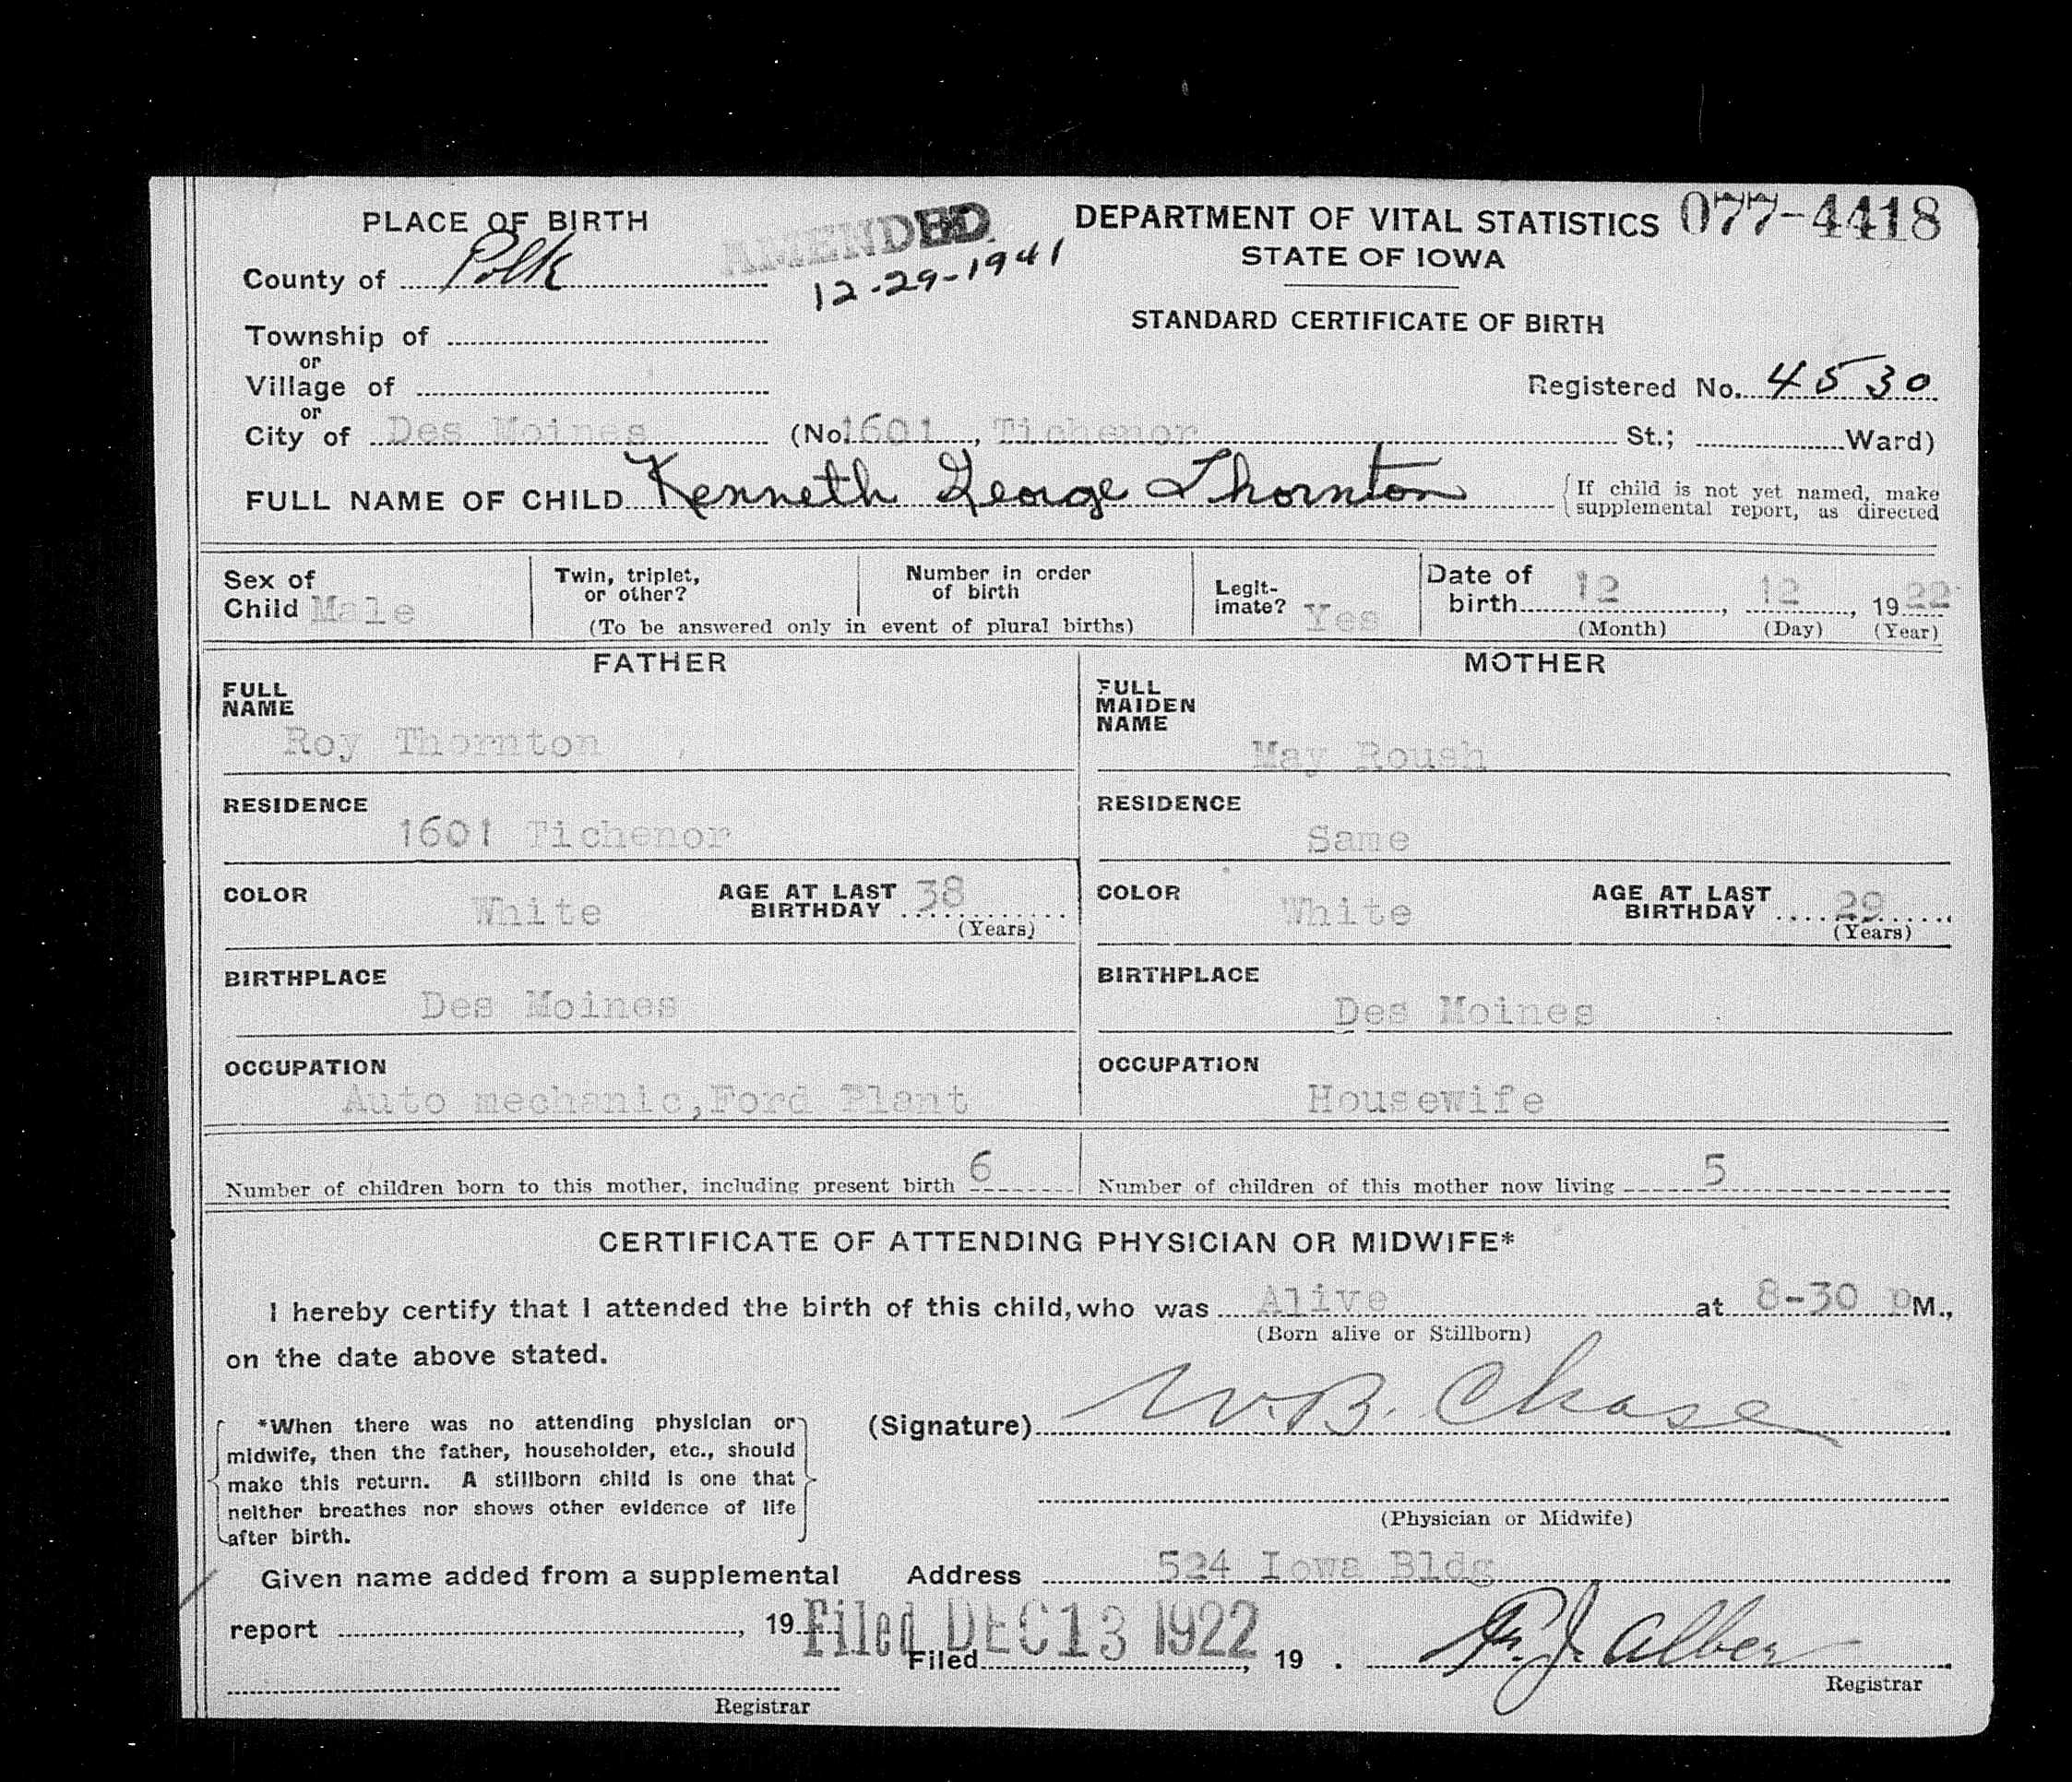 PLACE OF BIRTH
AMENDED
12-29-1941
DEPARTMENT OF VITAL STATISTICS 077-4418
STATE OF IOWA
County of Polk
STANDARD CERTIFICATE OF BIRTH
Township of
or
Village of
Registered No. 4530
or
City of Des Moines (No. 1601, Tichenor St.; Ward)
FULL NAME OF CHILD Kenneth George Thornton
{If child is not yet named, make
supplemental report, as directed
Sex of
Child Male
Twin, triplet,
or other?
Number in order
of birth
(To be answered only in event of plural births)
Legit-
imate? Yes
Date of
birth 12, 12, 1922
(Month) (Day) (Year)
FATHER
FULL
NAME
Roy Thornton
RESIDENCE
1601 Tichenor
COLOR White
AGE AT LAST
BIRTHDAY 38
(Years)
BIRTHPLACE
Des Moines
OCCUPATION
Auto mechanic,Ford Plant
MOTHER
FULL
MAIDEN
NAME
May Roush
RESIDENCE
Same
COLOR White
AGE AT LAST
BIRTHDAY 29
(Years)
BIRTHPLACE
Des Moines
OCCUPATION
Housewife
Number of children born to this mother, including present birth 6
Number of children of this mother now living 5
CERTIFICATE OF ATTENDING PHYSICIAN OR MIDWIFE*
I hereby certify that I attended the birth of this child, who was Alive at 8-30 pM.,
(Born alive or Stillborn)
on the date above stated.
(Signature) W.B. Chase
*When there was no attending physician or
midwife, then the father, householder, etc., should
make this return. A stillborn child is one that
neither breathes nor shows other evidence of life
after birth.
(Physician or Midwife)
Given name added from a supplemental
report , 19
Registrar
Address 524 Iowa Bldg
Filed DEC 13 1922
Filed , 19 .
J. Alber
Registrar